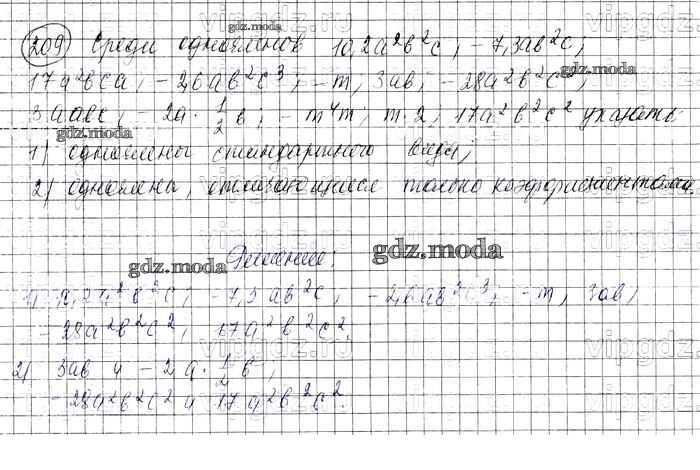 209 Среди одночленов 10,2a²b²c; -7,3ab²c;
17a²bca; -26ab²c³; -m, 3ab; -28a²b²c²;
3aabc; -2a·1/2b; -m⁴m; m·2; 17a²b²c² указать
1) одночлены стандартного вида;
2) одночлены, отличающиеся только коэффициентами.
Решение:
1) 10,2a²b²c, -7,3ab²c, -26ab²c³, -m, 3ab,
-28a²b²c², 17a²b²c².
2) 3ab и -2a·1/2b,
-28a²b²c² и 17a²b²c².
gdz.moda
gdz.moda
gdz.moda
gdz.moda
gdz.moda
vipgdz.ru
vipgdz.ru
vipgdz.ru